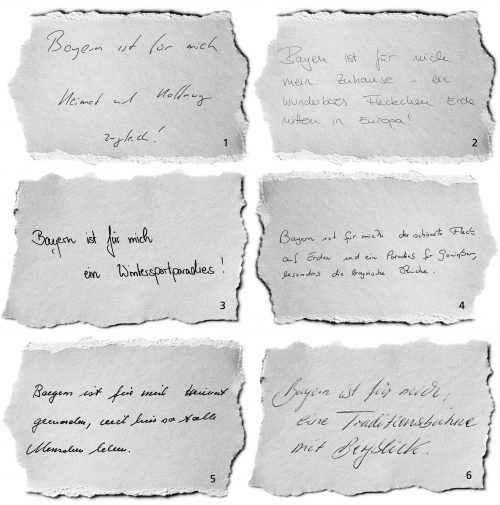 Bayern ist für mich
Heimat und Hoffnung
zugleich!
1
Bayern ist für mich
mein Zuhause - ein
wunderbares Fleckchen Erde
mitten in Europa!
2
Bayern ist für mich
ein Wintersportparadies!
3
Bayern ist für mich der schönste Fleck
auf Erden und ein Paradies für Genießer,
besonders die bayrische Küche.
4
Bayern ist für mich Heimat
geworden, weil hier so tolle
Menschen leben.
5
Bayern ist für mich,
eine Traditionsbühne
mit Bergblick.
6